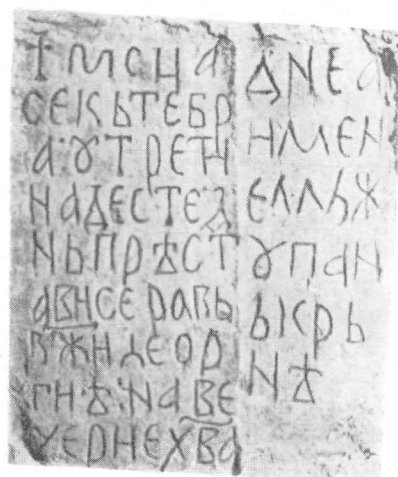 † МСЦА
СЕКЬТЕБР
А·ꙊТРЕТИ
НАДЕСТЕ·Д
НЬПРѢСТ
АВИСЕРАБЬ
БЖИЛЕОР
ГИ·Ѣ·NАВЕ
ЧЕРНЕХВА
ДNЕА
ИМЕN
ЕЛ·ЛЬЖ
ꙊПАN
ЬКРЬ
NѢ